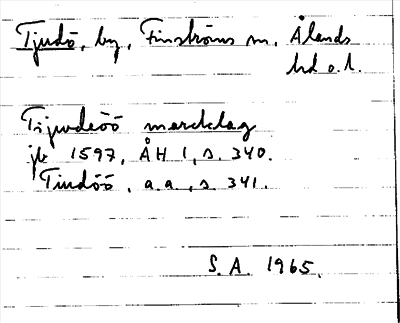 Tjudö, by, Finströms sn. Ålands
hd o. l.
Tijwdeöö marcklag
jb 1597, ÅH 1, s. 340.
Tiudöö, a.a., s. 341.
S. A. 1965.